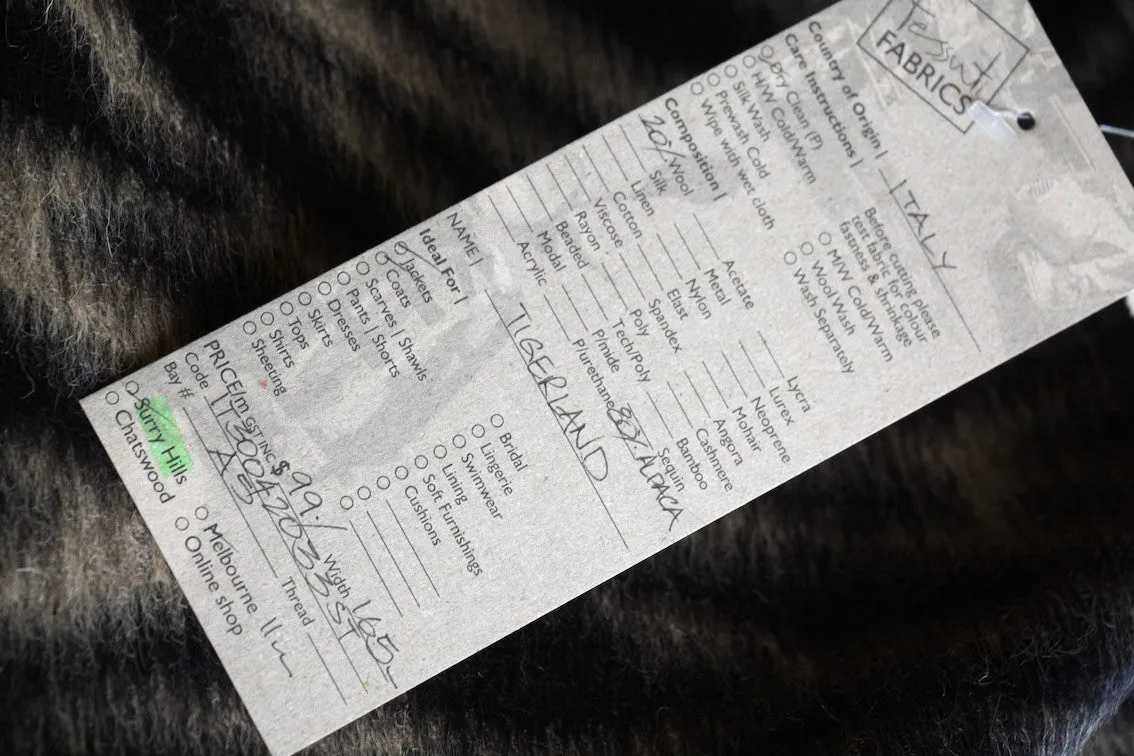 Tessuti
FABRICS
Country of Origin | ITALY
Care Instructions |
Dry Clean (P)
H/W Cold/Warm
Silk Wash
Prewash Cold
Wipe with wet cloth
Before cutting please
test fabric for colour
fastness & shrinkage
M/W Cold/Warm
Wool Wash
Wash Separately
Composition |
20% Wool
Silk
Linen
Cotton
Viscose
Rayon
Beaded
Modal
Acrylic
Acetate
Metal
Nylon
Elast
Spandex
Poly
Tech/Poly
P/mide
P/urethane
Lycra
Lurex
Neoprene
Mohair
Angora
Cashmere
Bamboo
Sequin
80% ALPACA
NAME | TIGERLAND
Ideal For |
Jackets
Coats
Scarves | Shawls
Pants | Shorts
Dresses
Skirts
Tops
Shirts
Sheeting
Bridal
Lingerie
Swimwear
Lining
Soft Furnishings
Cushions
PRICE/m GST INC $ 99./ Width 165
Code
Bay # Thread
Surry Hills
Chatswood
Melbourne
Online shop